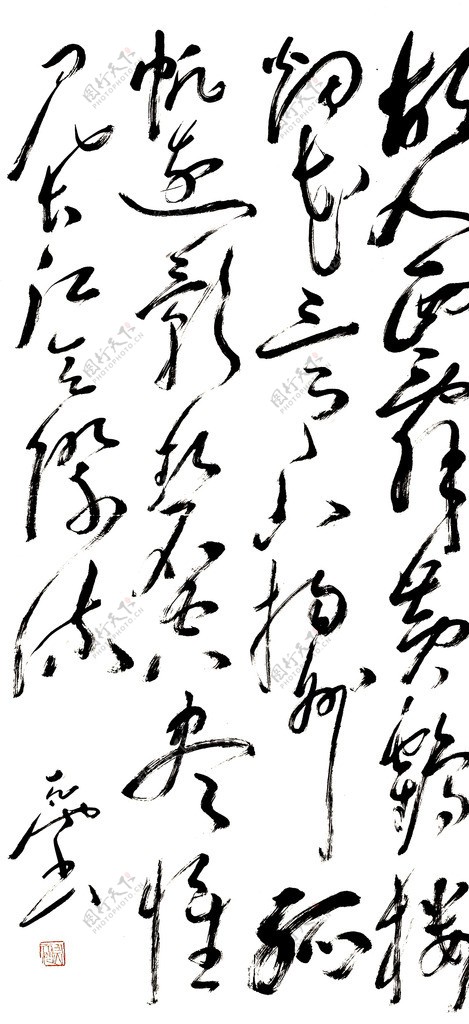 故人西辞黄鹤楼
烟花三月下扬州孤
帆远影碧空尽惟
见长江天际流
图行天下
PHOTOPHOTO.CN